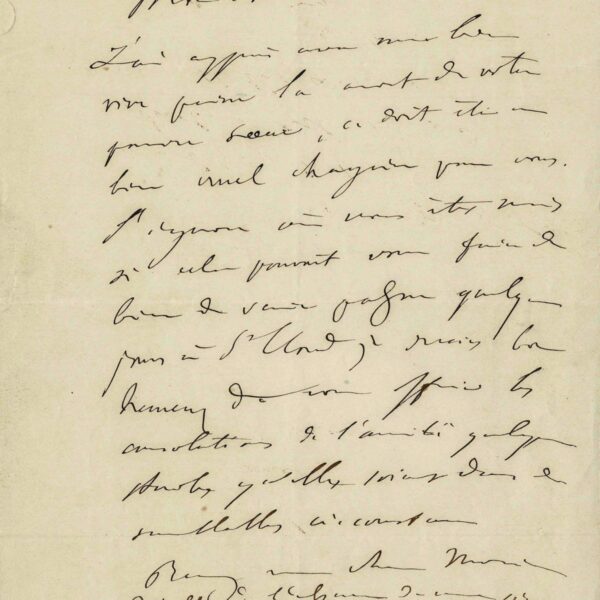 J'ai appris avec une bien
vive peine la mort de votre
pauvre sœur, ce doit être un
bien cruel chagrin pour vous.
J'ignore où vous êtes mais
si cela pouvait vous faire du
bien de venir passer quelques
jours à St Cloud je serais bien
heureux de vous offrir les
consolations de l'amitié quelque
qu'elles soient dans de
semblables circonstances
mon cher
de